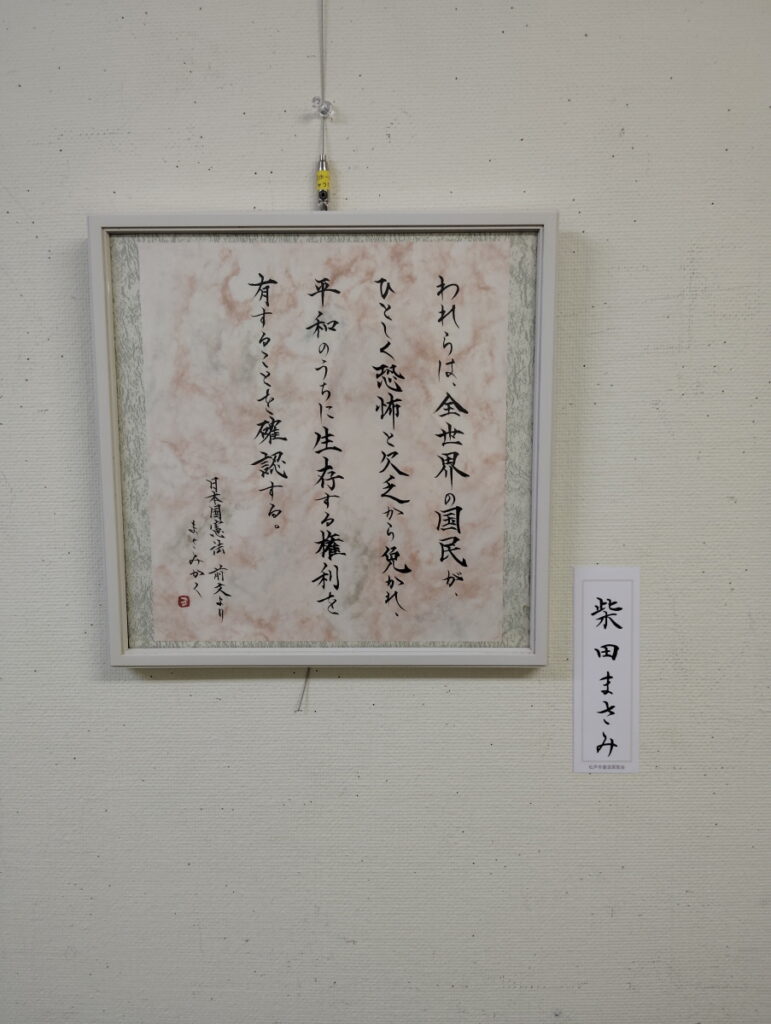 われらは、全世界の国民が、
ひとしく恐怖と欠乏から免かれ、
平和のうちに生存する権利を
有することを確認する。
日本国憲法 前文より
まさみかく
柴田まさみ